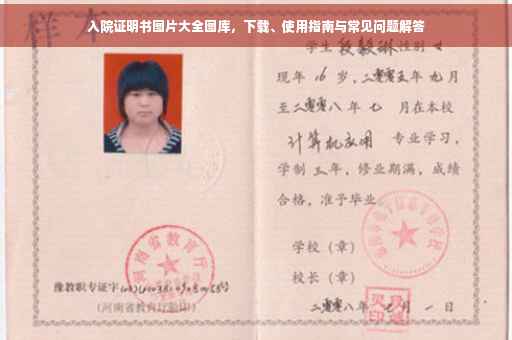 样本
入院证明书图片大全图库，下载、使用指南与常见问题解答
学生段毅琳性别女
现年16岁，二零零五年九月
至二零零八年七月在本校
计算机应用 专业学习，
学制三年，修业期满，成绩
合格，准予毕业
学校（章）
校长（章）
二零零八年七月一日
河南省教育厅
豫教职专证字
（河南省教育厅验印）